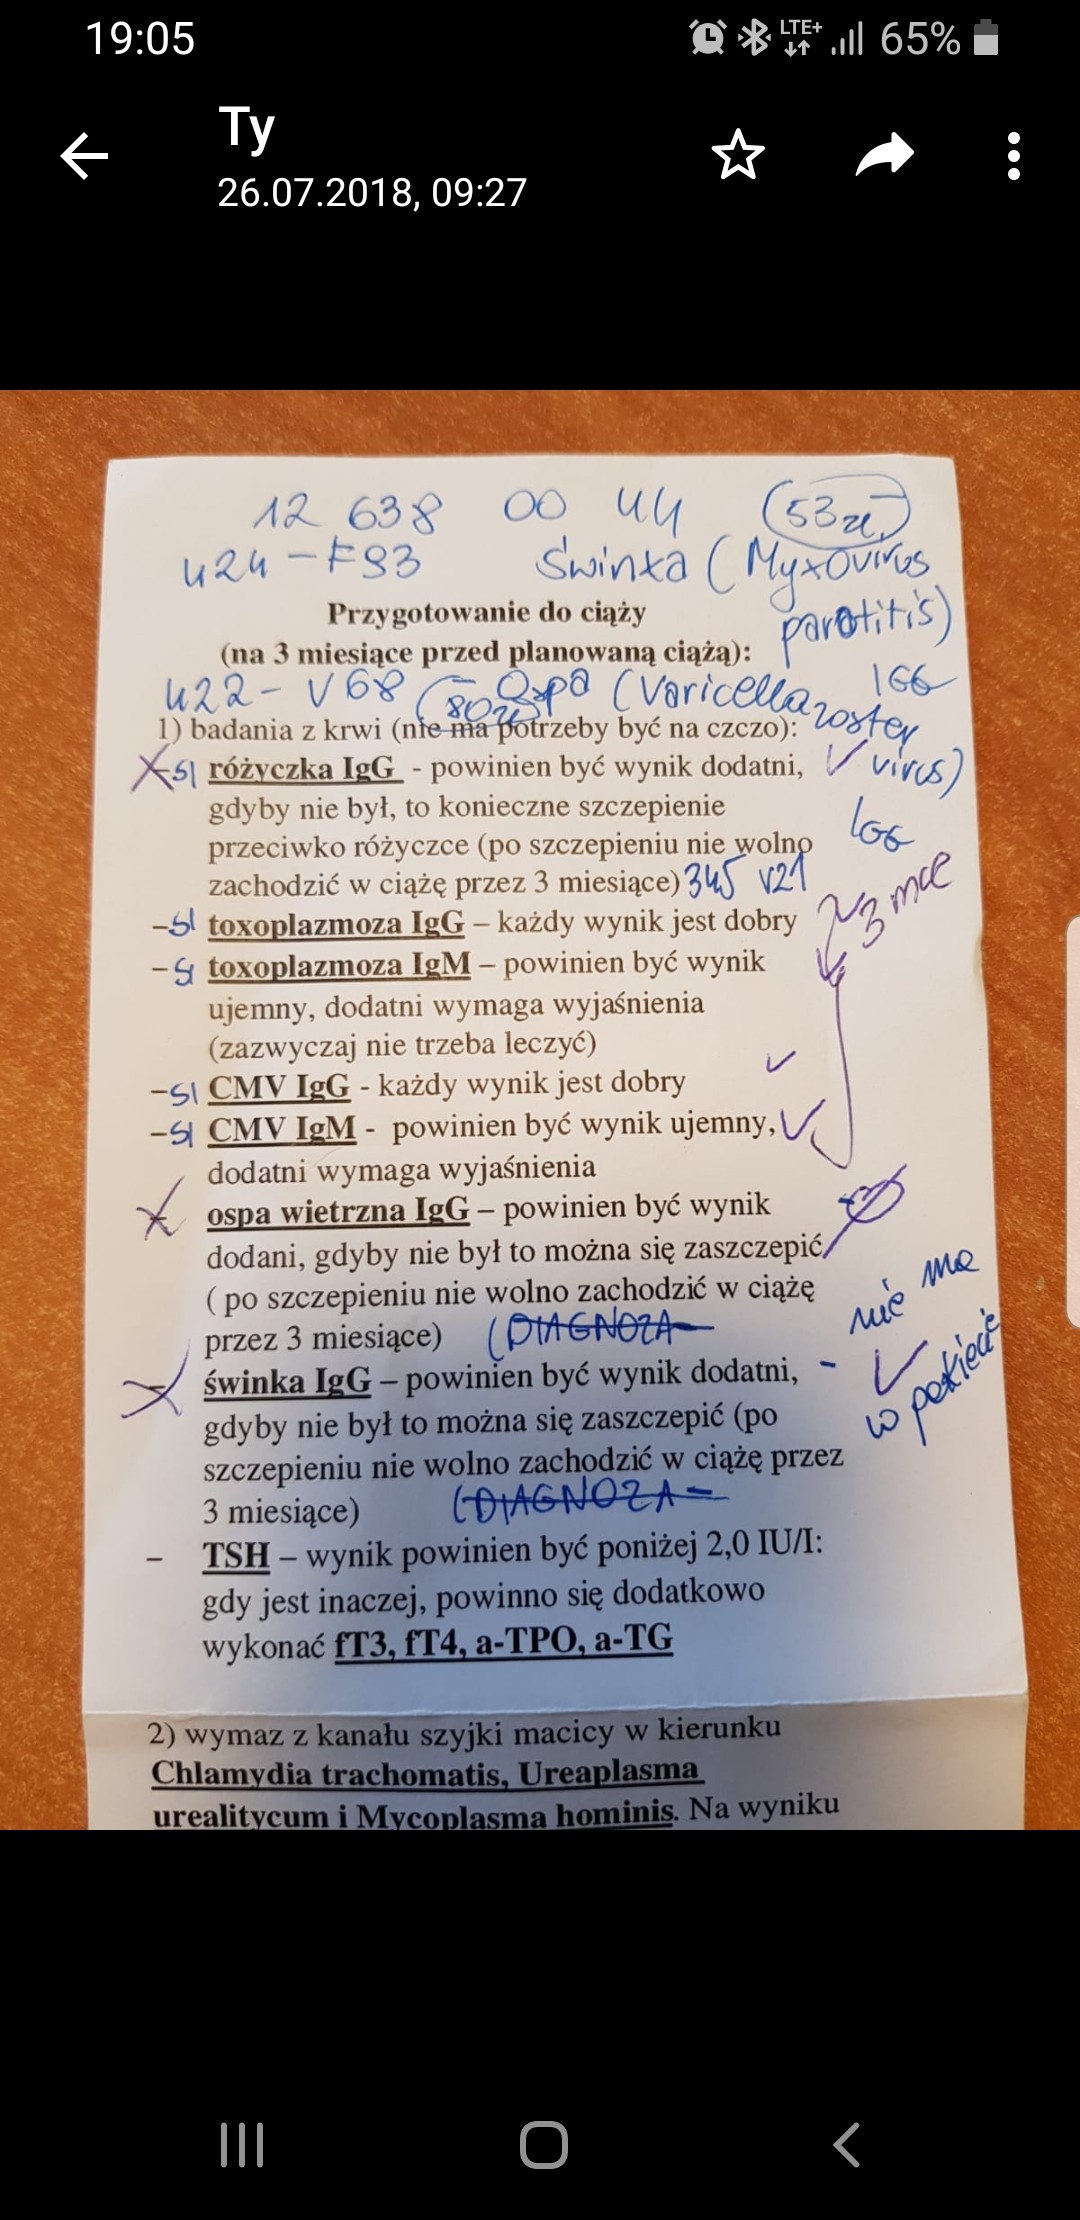 19:05
LTE+ 65%
Ty
26.07.2018, 09:27
12 638 00 44 (53zł)
424 - F93 Świnka (Myxovirus
parotitis)
IGG
Przygotowanie do ciąży
(na 3 miesiące przed planowaną ciążą):
422 - V68 (80zł) Ospa (Varicella zoster
virus)
IGG
1) badania z krwi (nie ma potrzeby być na czczo):
różyczka IgG - powinien być wynik dodatni,
gdyby nie był, to konieczne szczepienie
przeciwko różyczce (po szczepieniu nie wolno
zachodzić w ciążę przez 3 miesiące) 345 V21
toxoplazmoza IgG – każdy wynik jest dobry
3 mce
toxoplazmoza IgM – powinien być wynik
ujemny, dodatni wymaga wyjaśnienia
(zazwyczaj nie trzeba leczyć)
CMV IgG - każdy wynik jest dobry
CMV IgM - powinien być wynik ujemny,
dodatni wymaga wyjaśnienia
ospa wietrzna IgG – powinien być wynik
dodani, gdyby nie był to można się zaszczepić
( po szczepieniu nie wolno zachodzić w ciążę
przez 3 miesiące) (DIAGNOZA
nie ma
w pakiecie
świnka IgG – powinien być wynik dodatni, -
gdyby nie był to można się zaszczepić (po
szczepieniu nie wolno zachodzić w ciążę przez
3 miesiące) (DIAGNOZA
– TSH – wynik powinien być poniżej 2,0 IU/I:
gdy jest inaczej, powinno się dodatkowo
wykonać fT3, fT4, a-TPO, a-TG
2) wymaz z kanału szyjki macicy w kierunku
Chlamydia trachomatis, Ureaplasma
urealitycum i Mycoplasma hominis. Na wyniku